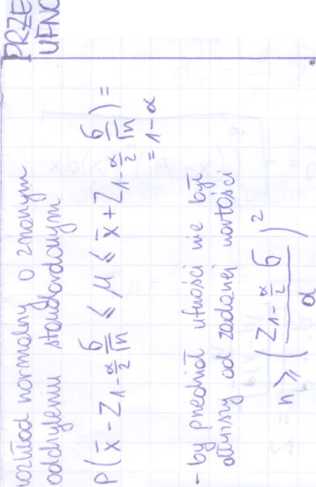 PRZE
UFNO
rozkład normalny o znanym
odchyleniu standardowym
P(x̄ - Z₁₋α/₂ σ/√n ≤ μ ≤ x̄ + Z₁₋α/₂ σ/√n) =
= 1-α
- by przedział ufności nie był
dłuższy od zadanej wartości
n ≥ (Z₁₋α/₂ σ / d)²